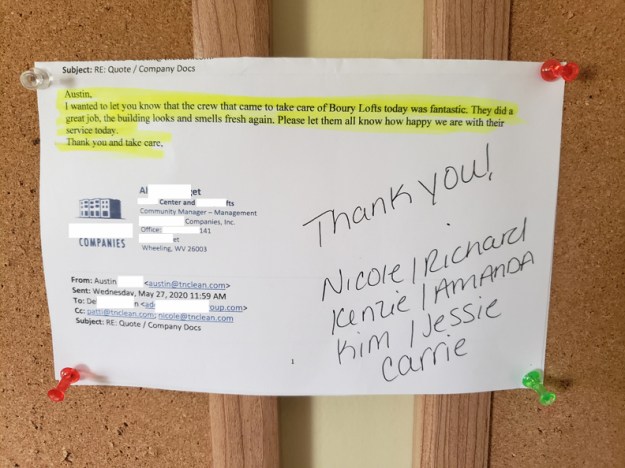 Subject: RE: Quote / Company Docs
Austin,
I wanted to let you know that the crew that came to take care of Boury Lofts today was fantastic. They did a
great job, the building looks and smells fresh again. Please let them all know how happy we are with their
service today.
Thank you and take care,
Al et
Center and fts
Community Manager – Management
Companies, Inc.
Office: 141
et
Wheeling, WV 26003
COMPANIES
From: Austin <austin@tnclean.com>
Sent: Wednesday, May 27, 2020 11:59 AM
To: De n <ad oup.com>
Cc: patti@tnclean.com; nicole@tnclean.com
Subject: RE: Quote / Company Docs
1
Thank you!
Nicole / Richard
Kenzie / AMANDA
Kim / Jessie
Carrie